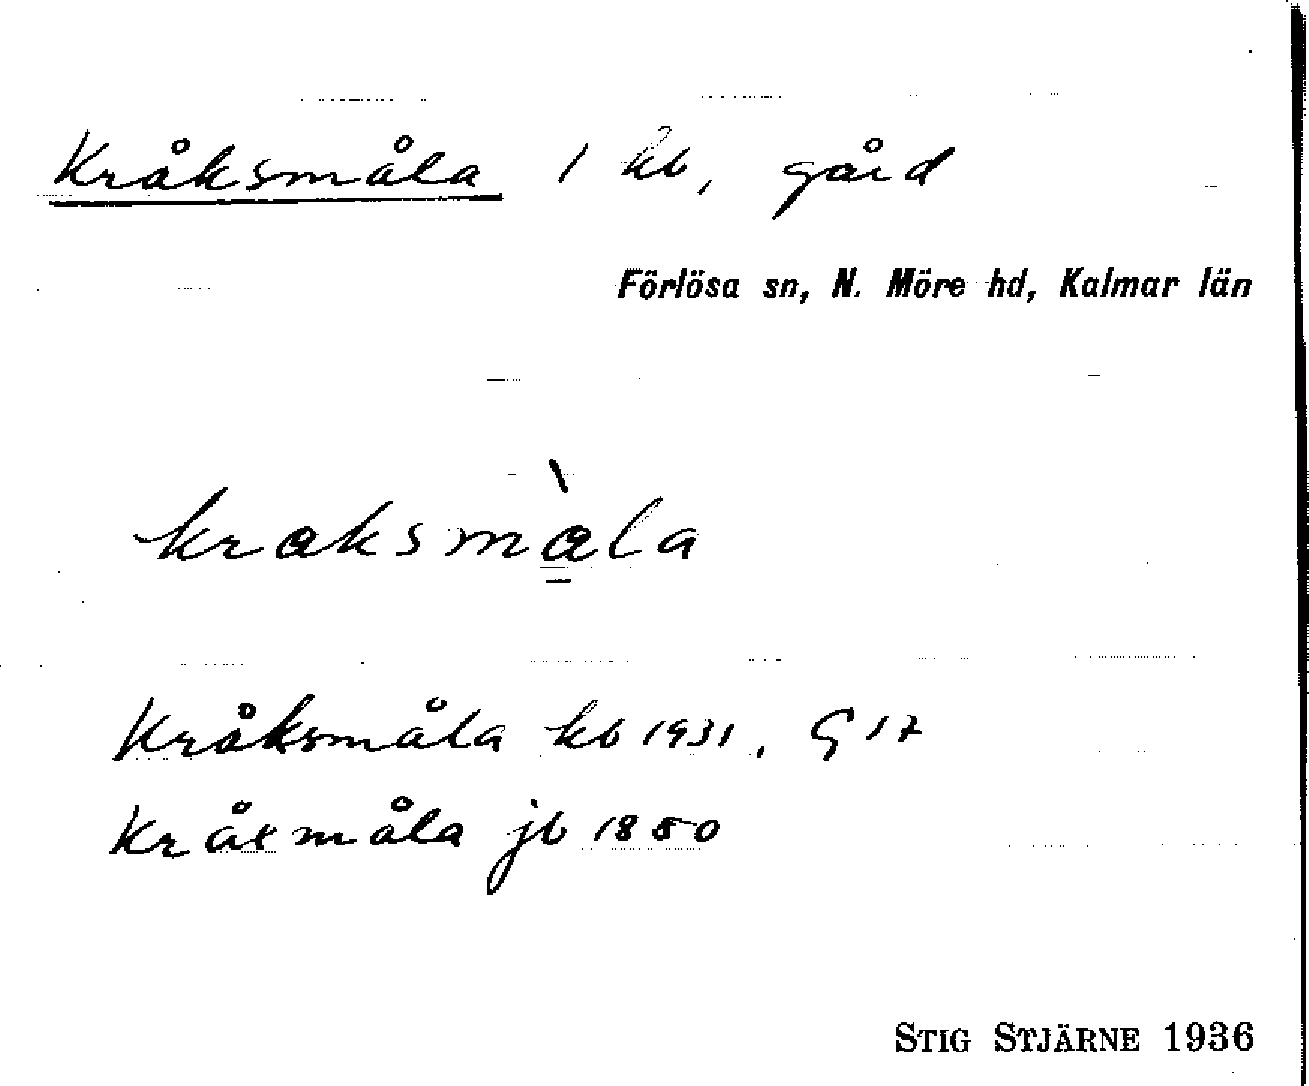 Kråksmåla 1 kb, gård
Förlösa sn, N. Möre hd, Kalmar län
kraksmàla
Kråksmåla kb 1931, G 17
Kråxmåla jb 1880
STIG STJÄRNE 1936